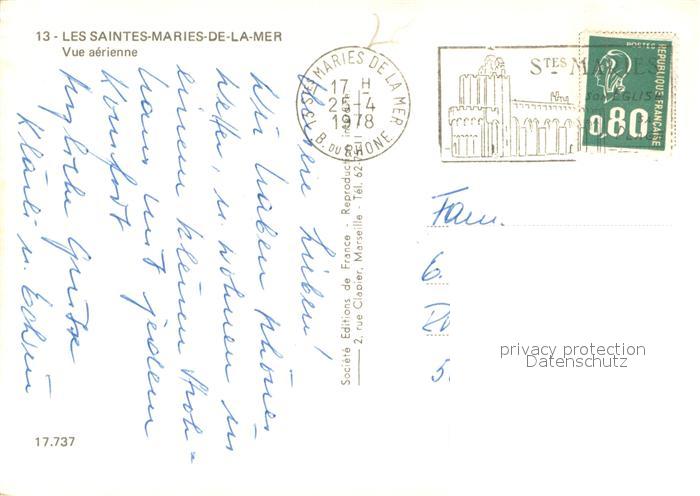 13 - LES SAINTES-MARIES-DE-LA-MER
Vue aérienne
STES MARIES DE LA MER
17 H
25-4
1978
B. DU RHÔNE
STES MARIES
son EGLISE
POSTES
REPUBLIQUE FRANÇAISE
0,80
Lieben!
Wir haben schönes
Wetter, u. wohnen in
einem kleinen Stroh-
haus mit jedem
Komfort
Herzliche Grüsse
Kläri u. Edwin
Société Editions de France - Reproduction
2, rue Clapier, Marseille - Tél. 62
Fam.
E.
5.
privacy protection
Datenschutz
17.737